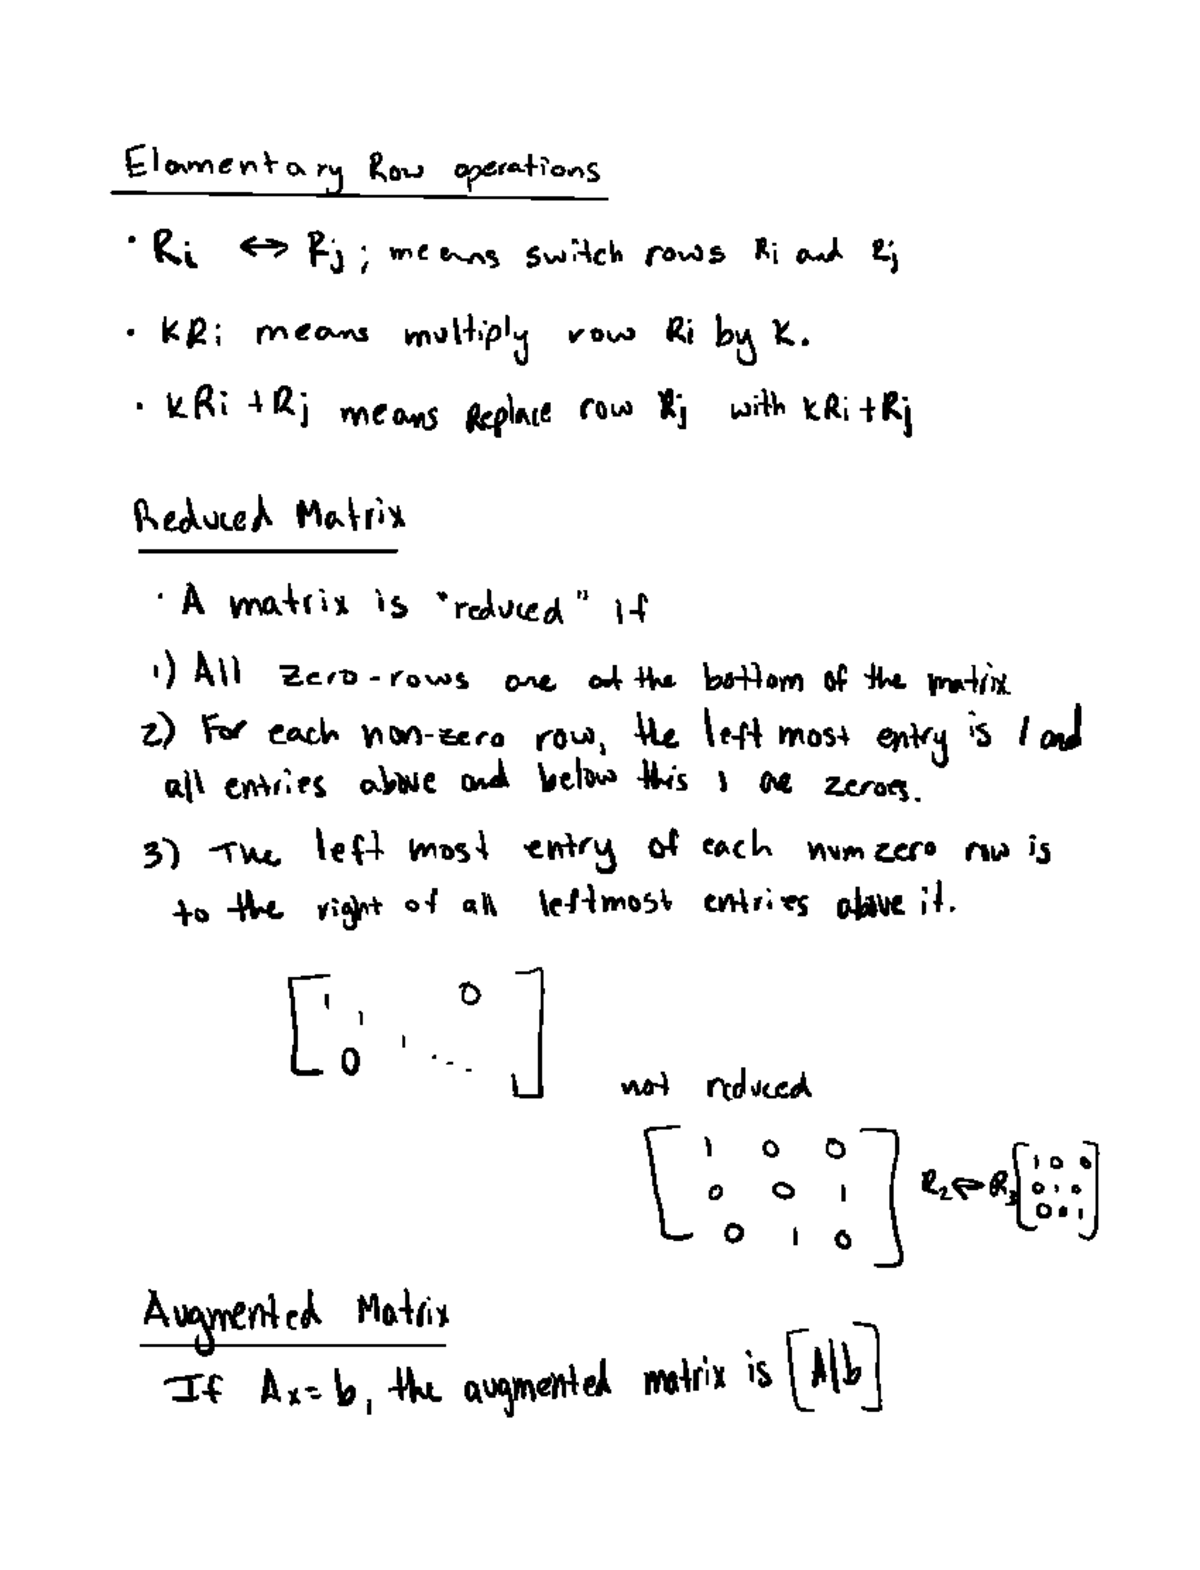 Elamentary Row operations
· Ri ↔ Rj ; means switch rows Ri and Rj
· KRi means multiply row Ri by K.
· kRi + Rj means Replace row Rj with kRi + Rj
Reduced Matrix
· A matrix is "reduced" if
1) All zero-rows are at the bottom of the matrix
2) For each non-zero row, the left most entry is 1 and
all entries above and below this 1 are zeroes.
3) The left most entry of each numzero row is
to the right of all leftmost entries above it.
1 0
1
0 1 ...
not reduced
1 0 0
0 0 1
0 1 0
R2 ↔ R3
1 0 0
0 1 0
0 0 1
Augmented Matrix
If Ax = b, the augmented matrix is [A|b]